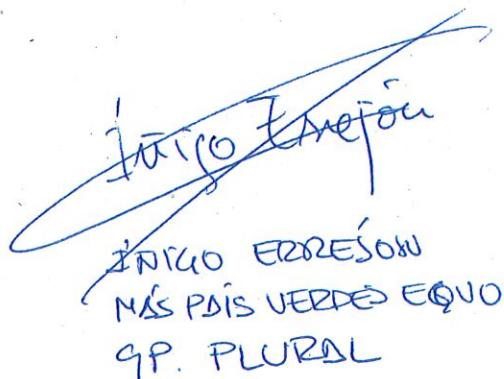 Íñigo Errejón
ÍÑIGO ERREJÓN
MÁS PAÍS VERDES EQUO
GP. PLURAL